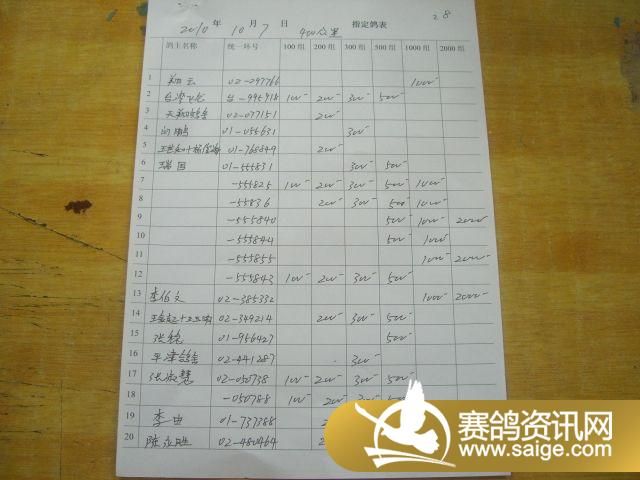 2010 年 10 月 7 日 400公里 指定鸽表 28
鸽主名称 统一环号 100 组 200 组 300 组 500 组 1000 组 2000 组
1 郑云 02-297766 1000
2 台湾飞龙 台-995918 100 200 300 500
3 天翔鸽舍 02-077151 200
4 向鹏 01-056631 300
5 01-768849 200
6 瑞国 01-555831 300 500
7 -555825 100 200 300 500 1000
8 -55836 200 300 500 1000
9 -555840 500 1000 2000
10 -555844 500 1000
11 -555855 1000 2000
12 -555843 100 200 300 500
13 李伯文 02-385332 1000 2000
14 02-349214 200 300 500
15 张铭 01-956427 500
16 平津鸽舍 02-441287 300
17 张淑慧 02-050738 100 200 300 500
18 -050788 100 200 300 500
19 李由 01-737388
20 陈永胜 02-480464
赛鸽资讯网
www.saige.com